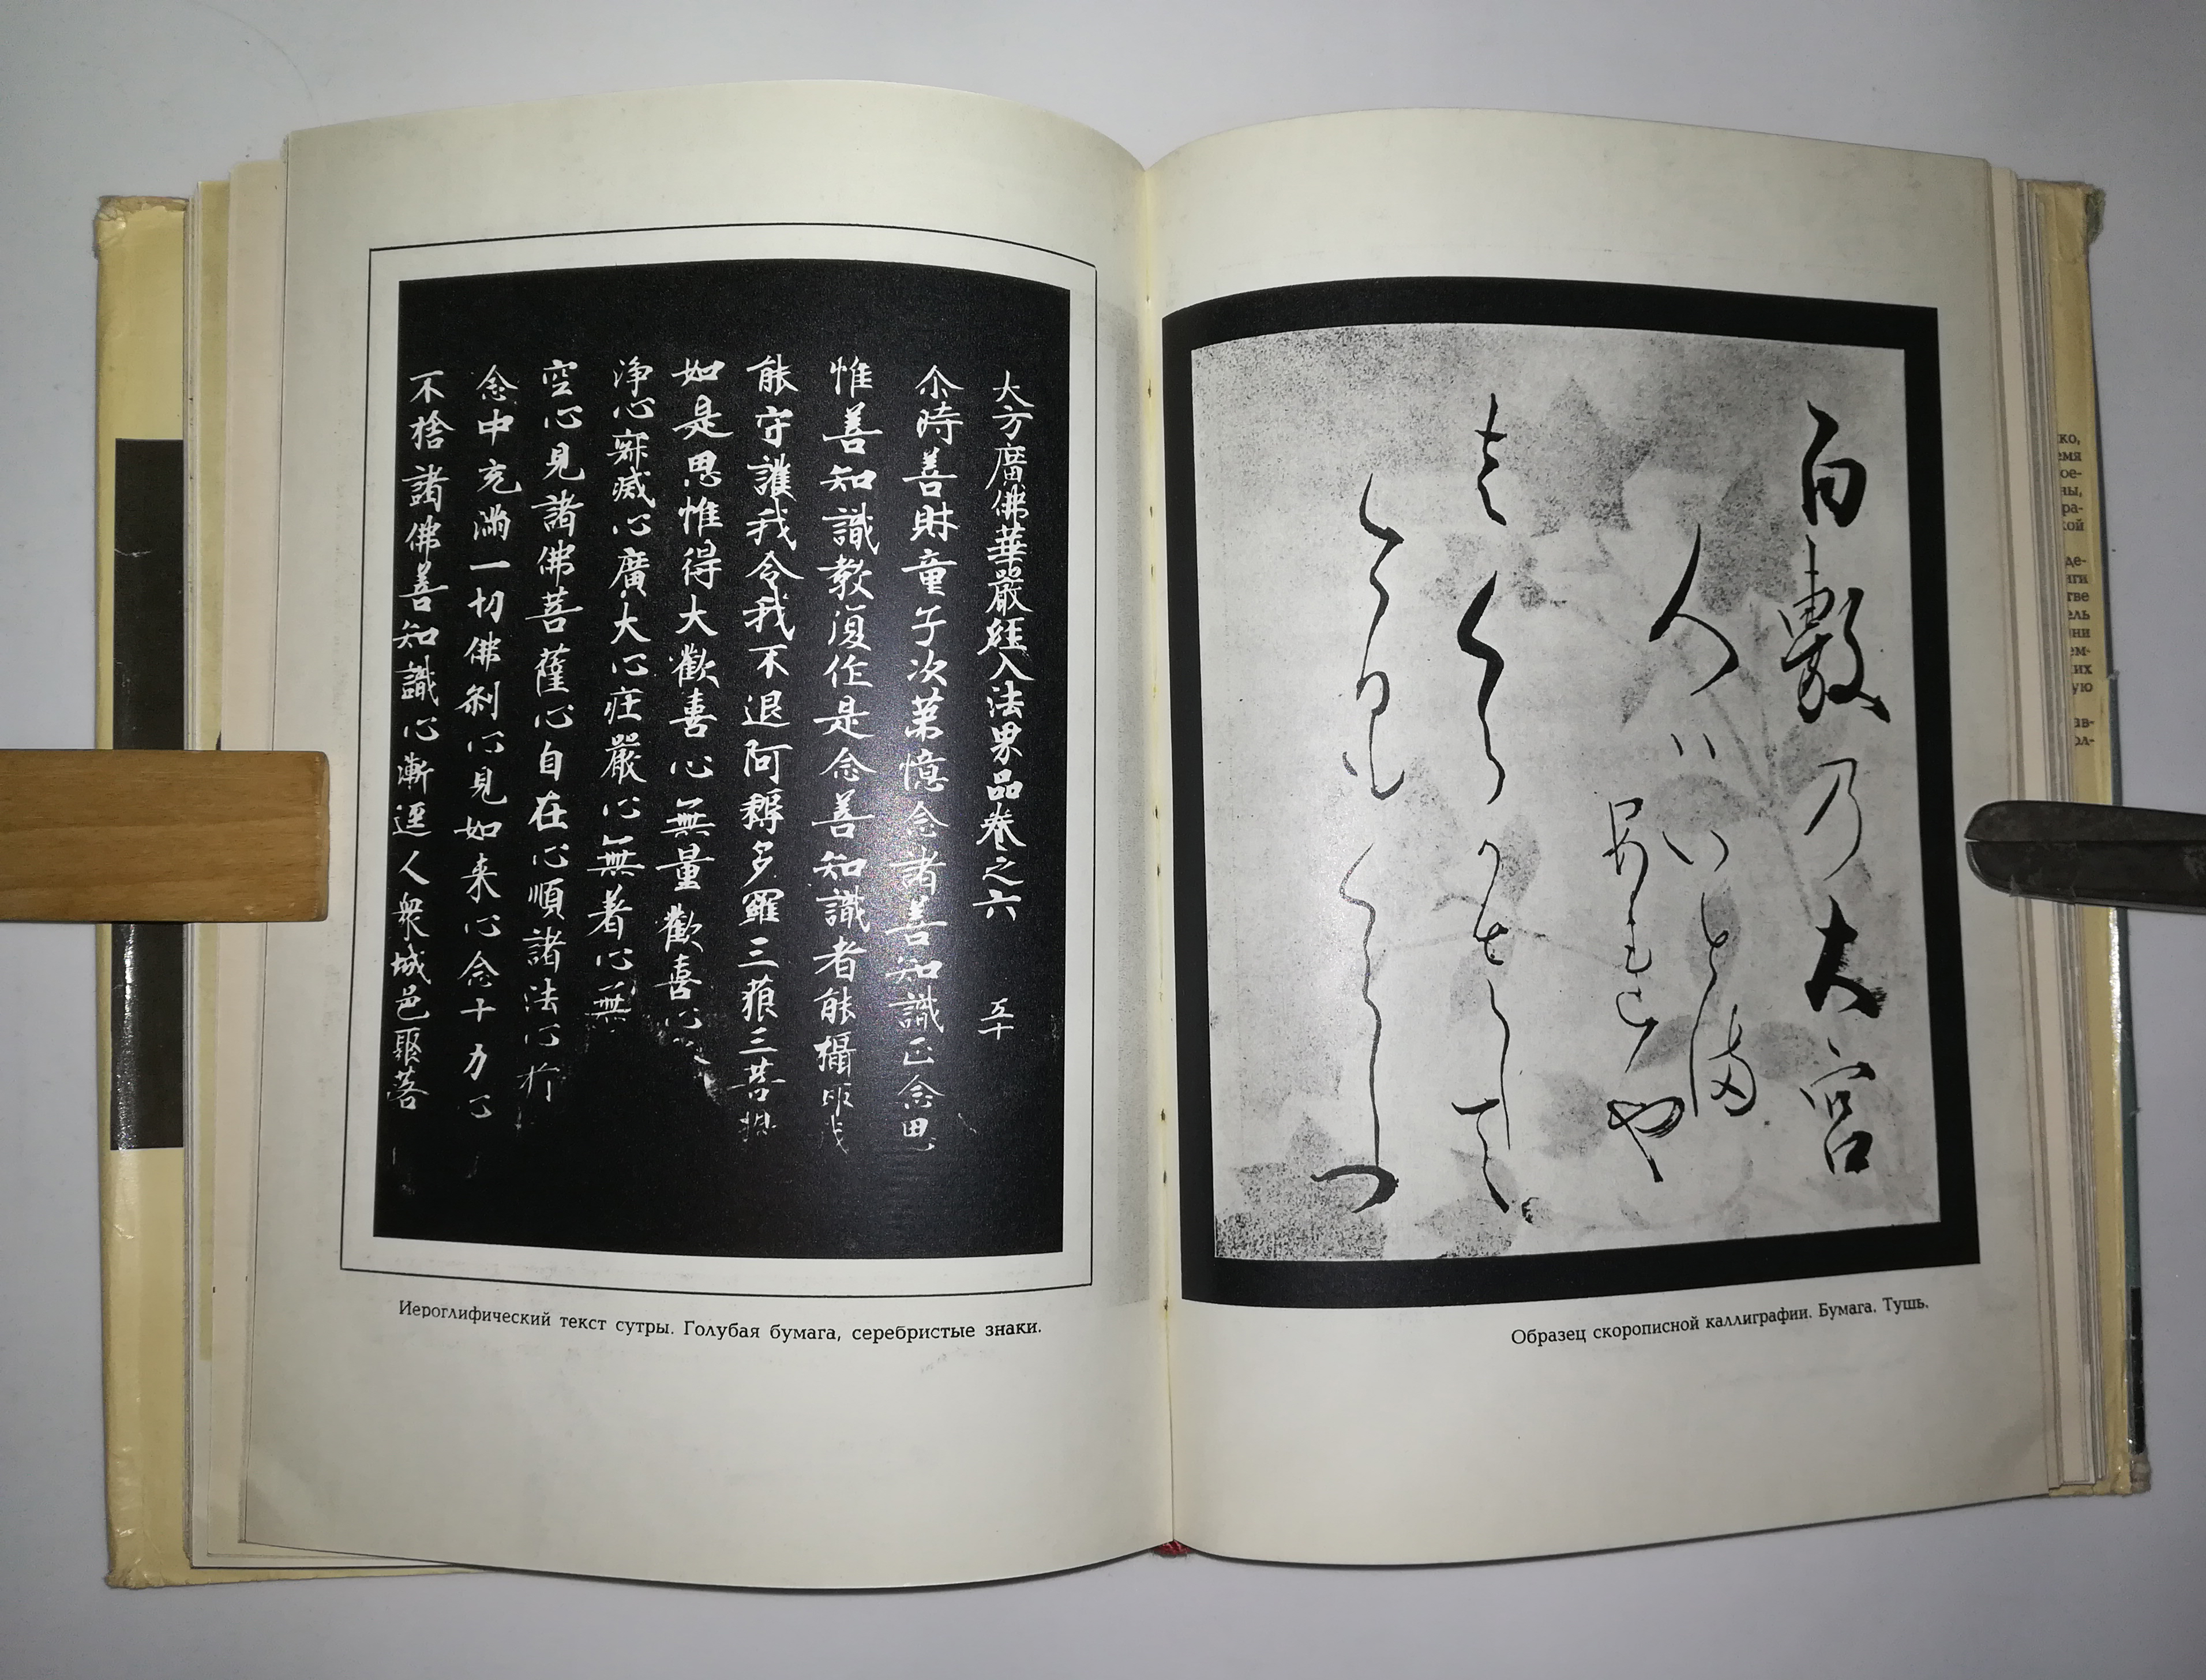 大方廣佛華嚴經入法界品卷之六 五十
尒時善財童子次第憶念諸善知識正念思
惟善知識教復作是念善知識者能攝取我
能守護我令我不退阿耨多羅三藐三菩提
如是思惟得大歡喜心無量歡喜心
淨心寂滅心廣大心莊嚴心無著心無
空心見諸佛菩薩心自在心順諸法心於
念中充滿一切佛剎心見如来心念十力心
不捨諸佛善知識心漸逕人衆城邑聚落
Иероглифический текст сутры. Голубая бумага, серебристые знаки.
百敷乃大宮
人ハいとま
や
さくらかさして
くらしつ
Образец скорописной каллиграфии. Бумага. Тушь.